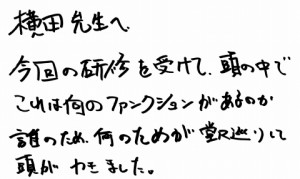 横田先生へ
今回の研修を受けて、頭の中で
これは何のファンクションがあるのか
誰のため、何のためが堂々巡りして
頭がわきました。